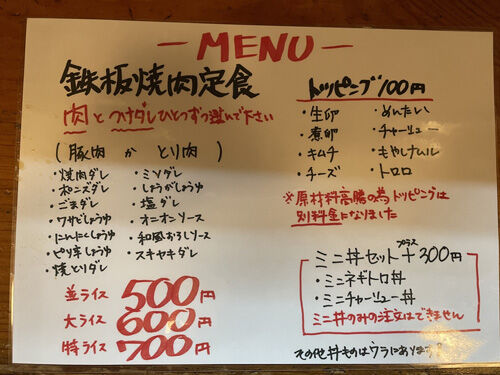 ーMENUー
鉄板焼肉定食
肉とつけダレひとつずつ選んで下さい
(豚肉 か とり肉)
・焼肉ダレ
・ポン酢ダレ
・ごまダレ
・ワサビしょうゆ
・にんにくしょうゆ
・ピリ辛しょうゆ
・焼とりダレ
・ミソダレ
・しょうがしょうゆ
・塩ダレ
・オニオンソース
・和風おろしソース
・スキヤキダレ
並ライス 500円
大ライス 600円
特ライス 700円
トッピング100円
・生卵
・煮卵
・キムチ
・チーズ
・めんたい
・チャーシュー
・もやしナムル
・トロロ
※原材料高騰の為トッピングは
別料金になりました
ミニ丼セット+プラス300円
・ミニネギトロ丼
・ミニチャーシュー丼
ミニ丼のみの注文はできません
その他丼ものはウラにあります